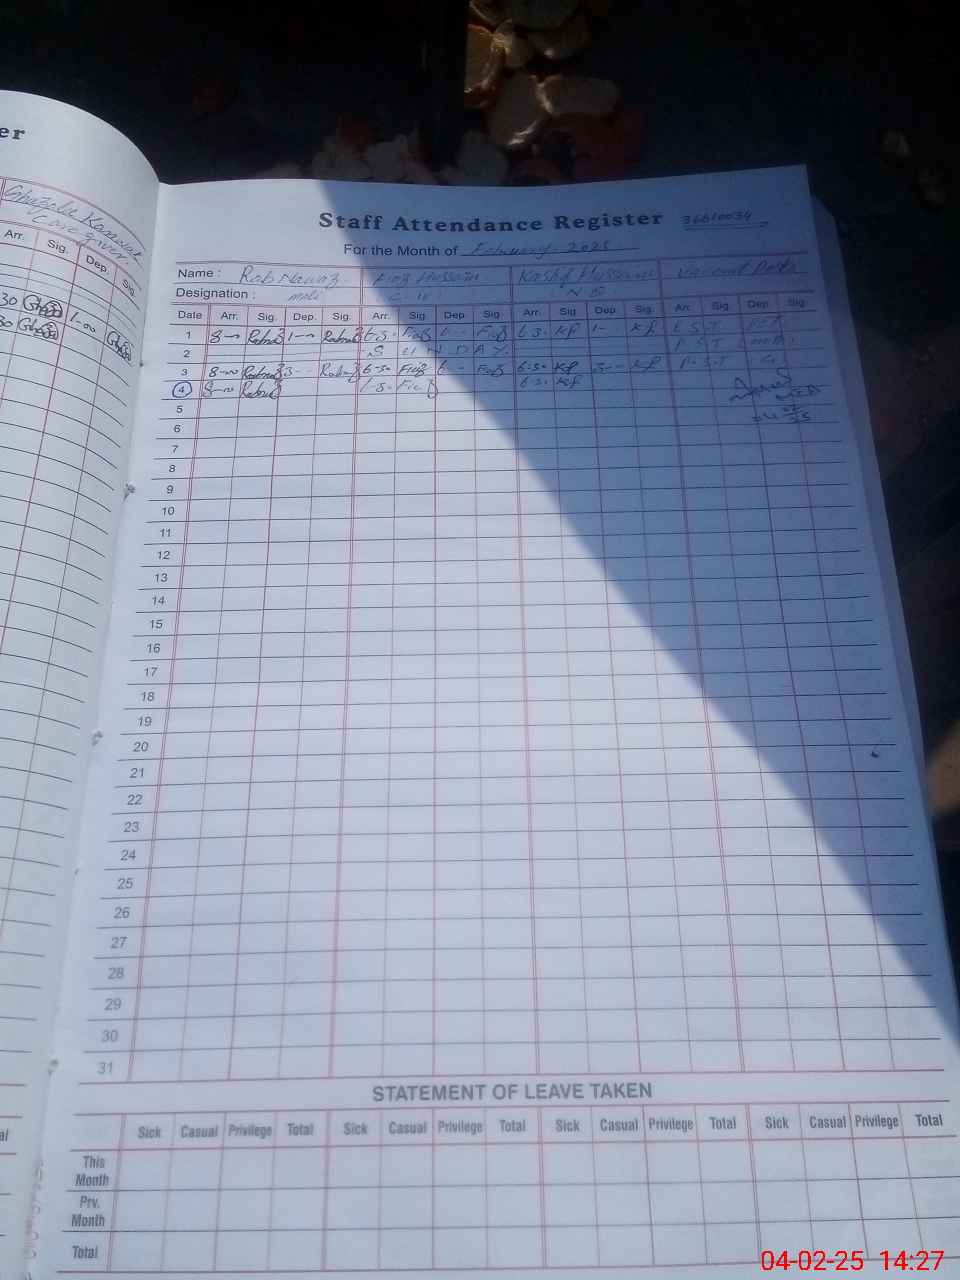 er
Ghazala Kanwal
Care giver
Arr. Sig. Dep. Sig.
30
1-00
30
Staff Attendance Register 36810034
For the Month of February. 2025
Name : Rab Nawaz Fiaz Hussain Kashif Hussain Vacant Posts
Designation : mali N Q
Date Arr. Sig. Dep. Sig. Arr. Sig Dep Sig. Arr. Sig Dep. Sig. Arr. Sig. Dep Sig.
1 8-00 Rabnaz 1-00 Rabnaz 6-30 Fiaz 6-- Fiaz 6-30 Kf 1- Kf E.S.T
2 S U N D A Y. P.S.T
3 8-00 Rabnaz 3-- Rabnaz 6-30 Fiaz 6-- Fiaz 6-30 Kf 3-- Kf P.S.T
4 8-00 Rabnaz 6-30 Kf
5
6
7
8
9
10
11
12
13
14
15
16
17
18
19
20
21
22
23
24
25
26
27
28
29
30
31
STATEMENT OF LEAVE TAKEN
Sick Casual Privilege Total Sick Casual Privilege Total Sick Casual Privilege Total Sick Casual Privilege Total
This
Month
Prv.
Month
Total
al
04-02-25 14:27